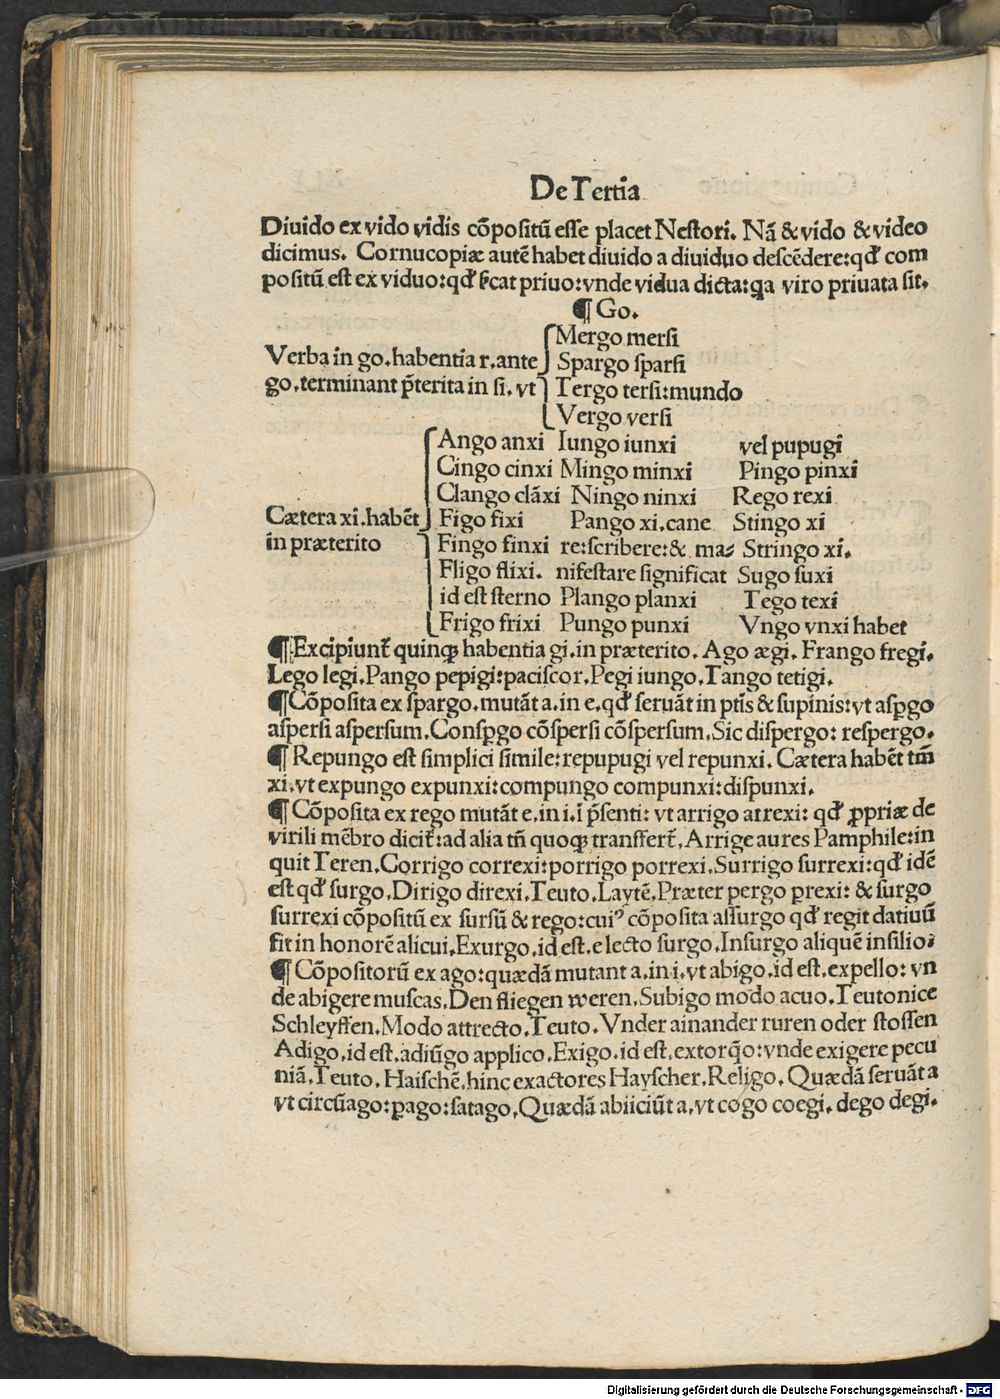 De Tertia
Diuido ex vido vidis cõpositũ esse placet Nestori. Nã & vido & video
dicimus. Cornucopiæ autẽ habet diuido a diuiduo descẽdere: qđ com
positũ est ex viduo: qđ cat priuo: vnde vidua dicta: qa viro priuata sit.
¶ Go.
Mergo mersi
Verba in go. habentia r. ante Spargo sparsi
go. terminant p̃terita in si. vt Tergo tersi: mundo
Vergo versi
Ango anxi Iungo iunxi vel pupugi
Cingo cinxi Mingo minxi Pingo pinxi
Clango clãxi Ningo ninxi Rego rexi
Cætera xi. habẽt Figo fixi Pango xi. cane Stingo xi
in præterito Fingo finxi re: scribere: & ma⸗ Stringo xi.
Fligo flixi. nifestare significat Sugo suxi
id est sterno Plango planxi Tego texi
Frigo frixi Pungo punxi Vngo vnxi habet
¶ Excipiunt̃ quinq; habentia gi. in præterito. Ago ægi. Frango fregi.
Lego legi. Pango pepigi: paciscor. Pegi iungo. Tango tetigi.
¶ Cõposita ex spargo. mutãt a. in e. qđ seruãt in ptis & supinis: vt aspgo
aspersi aspersum. Conspgo cõspersi cõspersum. Sic dispergo: respergo.
¶ Repungo est simplici simile: repupugi vel repunxi. Cætera habẽt tm̃
xi. vt expungo expunxi: compungo compunxi: dispunxi.
¶ Cõposita ex rego mutãt e. in i. ĩ p̃senti: vt arrigo arrexi: qđ ꝓpriæ de
virili mẽbro dicit̃: ad alia tñ quoq; transffert̃. Arrige aures Pamphile: in
quit Teren. Corrigo correxi: porrigo porrexi. Surrigo surrexi: qđ idẽ
est qđ surgo. Dirigo direxi. Teuto. Laytẽ. Præter pergo ꝑrexi: & surgo
surrexi cõpositũ ex sursũ & rego: cuiꝰ cõposita assurgo qđ regit datiuũ
fit in honorẽ alicui. Exurgo. id est. e lecto surgo. Insurgo aliquẽ insilio:
¶ Cõpositorũ ex ago: quædã mutant a. in i. vt abigo. id est. expello: vn
de abigere muscas. Den fliegen weren. Subigo modo acuo. Teutonice
Schleyffen. Modo attrecto. Teuto. Vnder ainander ruren oder stossen
Adigo. id est. adiũgo applico. Exigo. id est. extorq̃o: vnde exigere pecu
niã. Teuto. Haischẽ. hinc exactores Hayscher. Religo. Quædã seruãt a
vt circũago: ꝑago: satago. Quædã abiiciũt a. vt cogo coegi. dego degi.
Digitalisierung gefördert durch die Deutsche Forschungsgemeinschaft - DFG